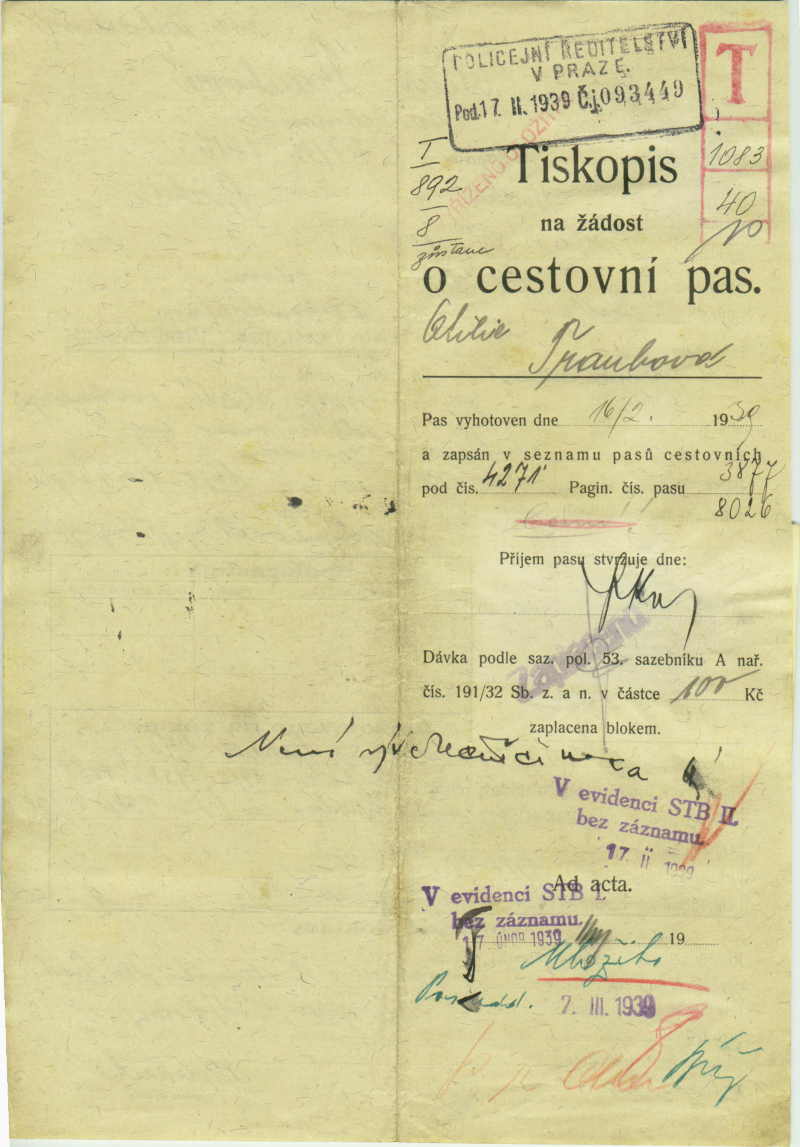 POLICEJNÍ ŘEDITELSTVÍ
V PRAZE.
Pod. 17. II. 1939 Č.j. 093449
T
I
892
8
zůstane
1083
40
Tiskopis
na žádost
o cestovní pas.
Otilie
Traubová
Pas vyhotoven dne 16/2. 1939
a zapsán v seznamu pasů cestovních
pod čís. 4271 Pagin. čís. pasu 3877
8026
Příjem pasu stvrzuje dne:
Zapsáno
Dávka podle saz. pol. 53. sazebníku A nař.
čís. 191/32 Sb. z. a n. v částce 100 Kč
zaplacena blokem.
Není
V evidenci STB II.
bez záznamu.
17 II 1939
Ad acta.
V evidenci STB I.
bez záznamu.
17 ÚNOR 1939
19
7. III. 1939